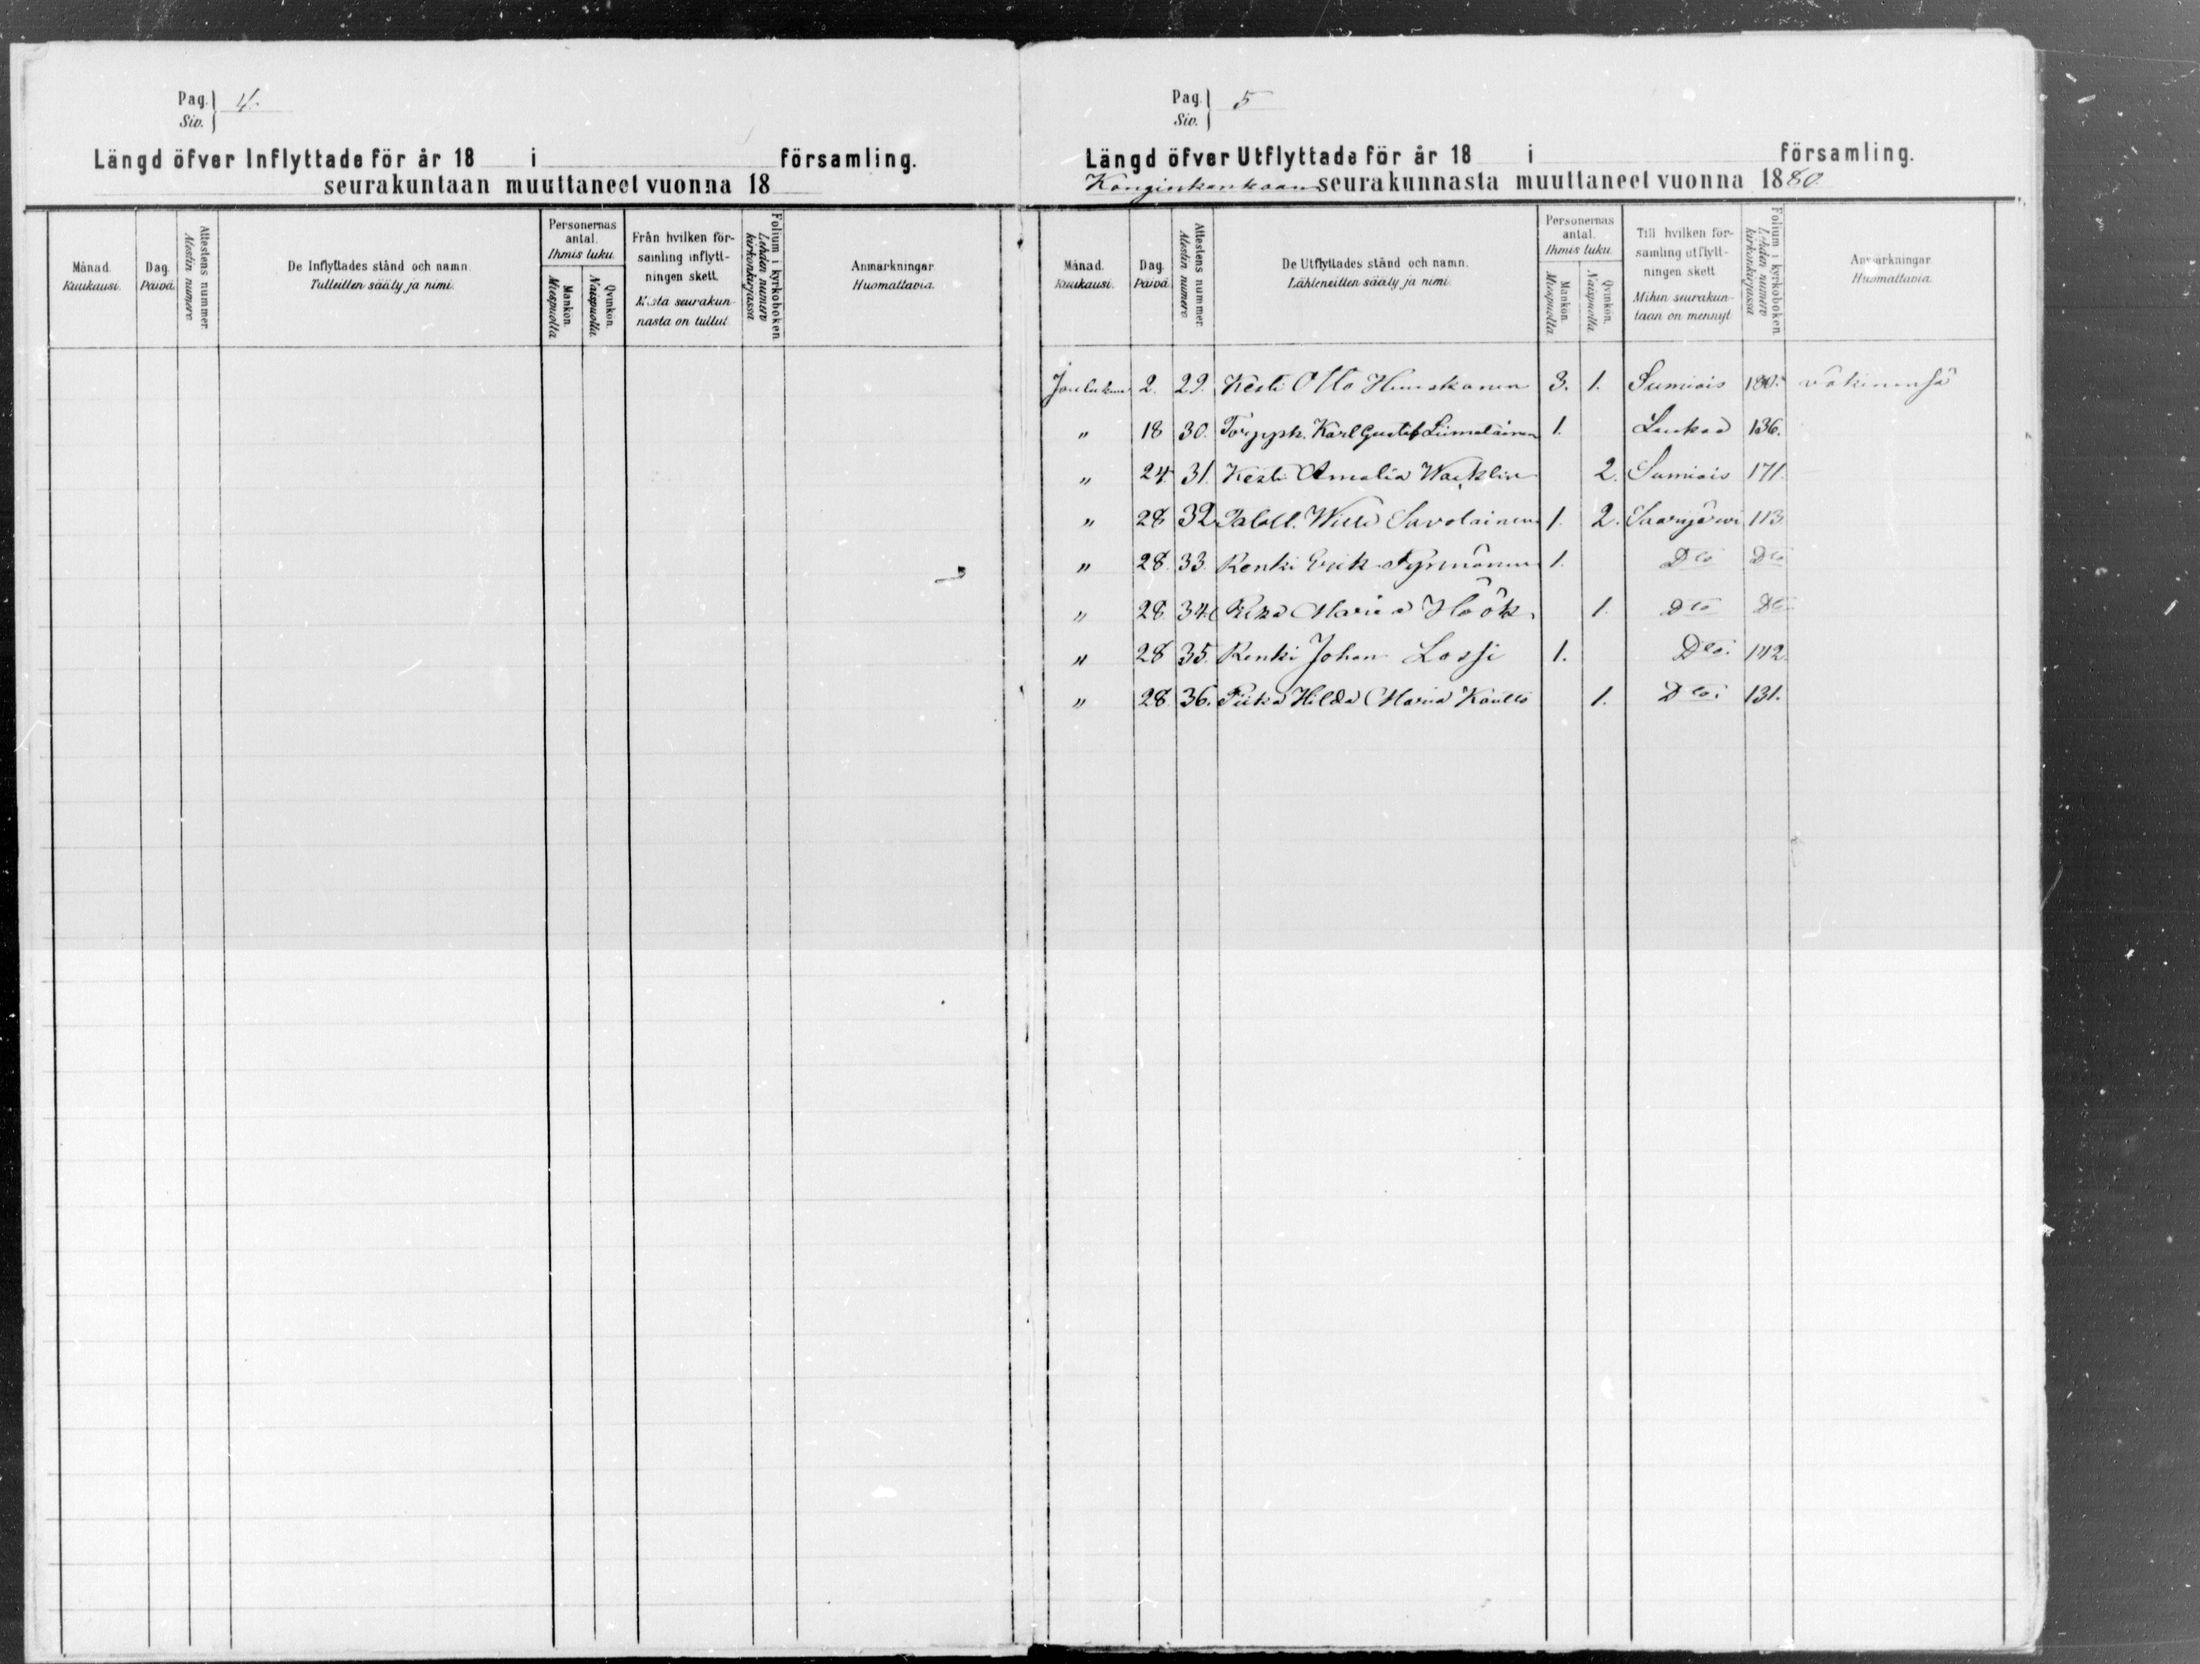 Pag. 4.
Siv.
Längd öfver Inflyttade för år 18 i församling.
seurakuntaan muuttaneet vuonna 18
Månad. Kuukausi.
Dag. Päivä.
Attestens nummer. Atestin numero
De Inflyttades stånd och namn. Tulleitten sääty ja nimi.
Personernas antal. Ihmis luku.
Mankön. Miespuolta
Qvinkön. Naispuolta.
Från hvilken församling inflyttningen skett. Mistä seurakunnasta on tullut
Folium i kyrkoboken. Lehden numero kirkonkirjassa
Anmärkningar Huomattavia.
Pag. 5
Siv.
Längd öfver Utflyttade för år 18 i församling.
Konginkankaan seurakunnasta muuttaneet vuonna 1880.
Månad. Kuukausi.
Dag. Päivä.
Attestens nummer. Atestin numero
De Utflyttades stånd och namn. Lähteneitten sääty ja nimi.
Personernas antal. Ihmis luku.
Mankön. Miespuolta
Qvinkön. Naispuolta.
Till hvilken församling utflyttningen skett Mihin seurakuntaan on mennyt
Folium i kyrkoboken. Lehden numero kirkonkirjassa
Anmärkningar Huomattavia.
Jouluk 2. 29. Kesti Otto 3. 1. Sumiais 180.
" 18 30. Torppk. Karl Gustaf Liimatainen 1. Laukaa 136.
" 24. 31. Kesti Amalia Wacklin 2. Sumiais 171.
" 28 32 Wille Savolainen 1. 2. Saarijärwi 113.
" 28. 33. Renki Erik 1. Dto Dto
" 28. 34. Maria Höök 1. Dto Dto
" 28 35. Renki Johan Lassi 1. Dto. 142.
" 28. 36. Piika Hilda Maria Kautto 1. Dto. 131.